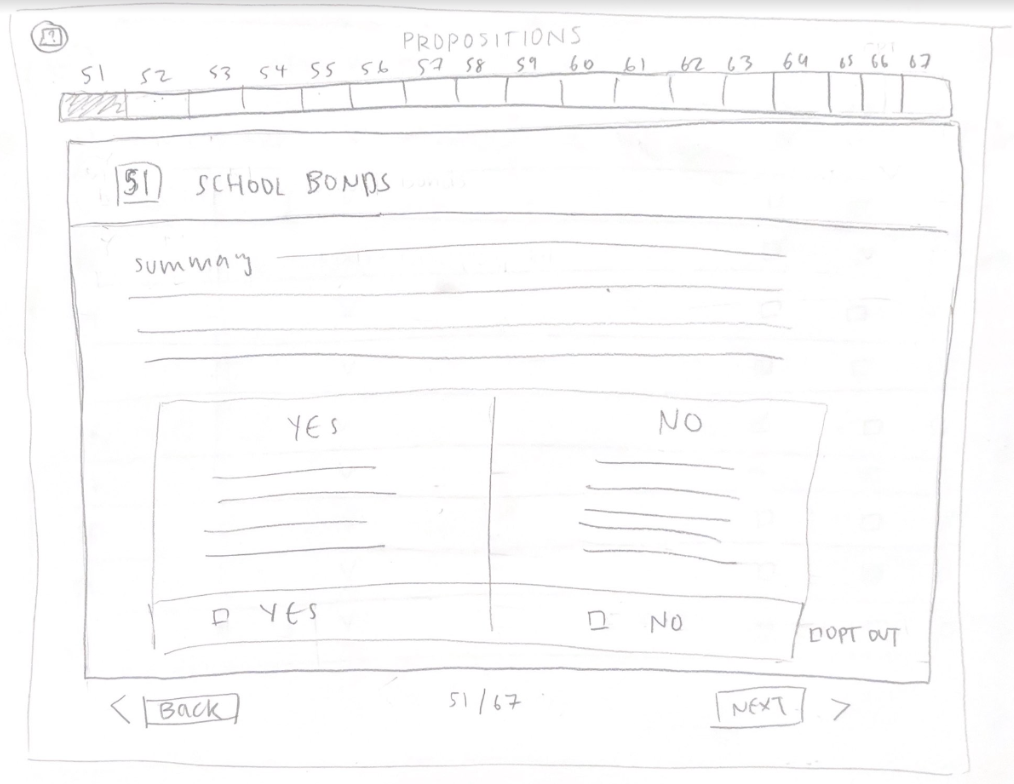 ?
PROPOSITIONS
51 52 53 54 55 56 57 58 59 60 61 62 63 64 65 66 67
51 SCHOOL BONDS
summary
YES NO
YES NO
OPT OUT
< Back 51/67 NEXT >